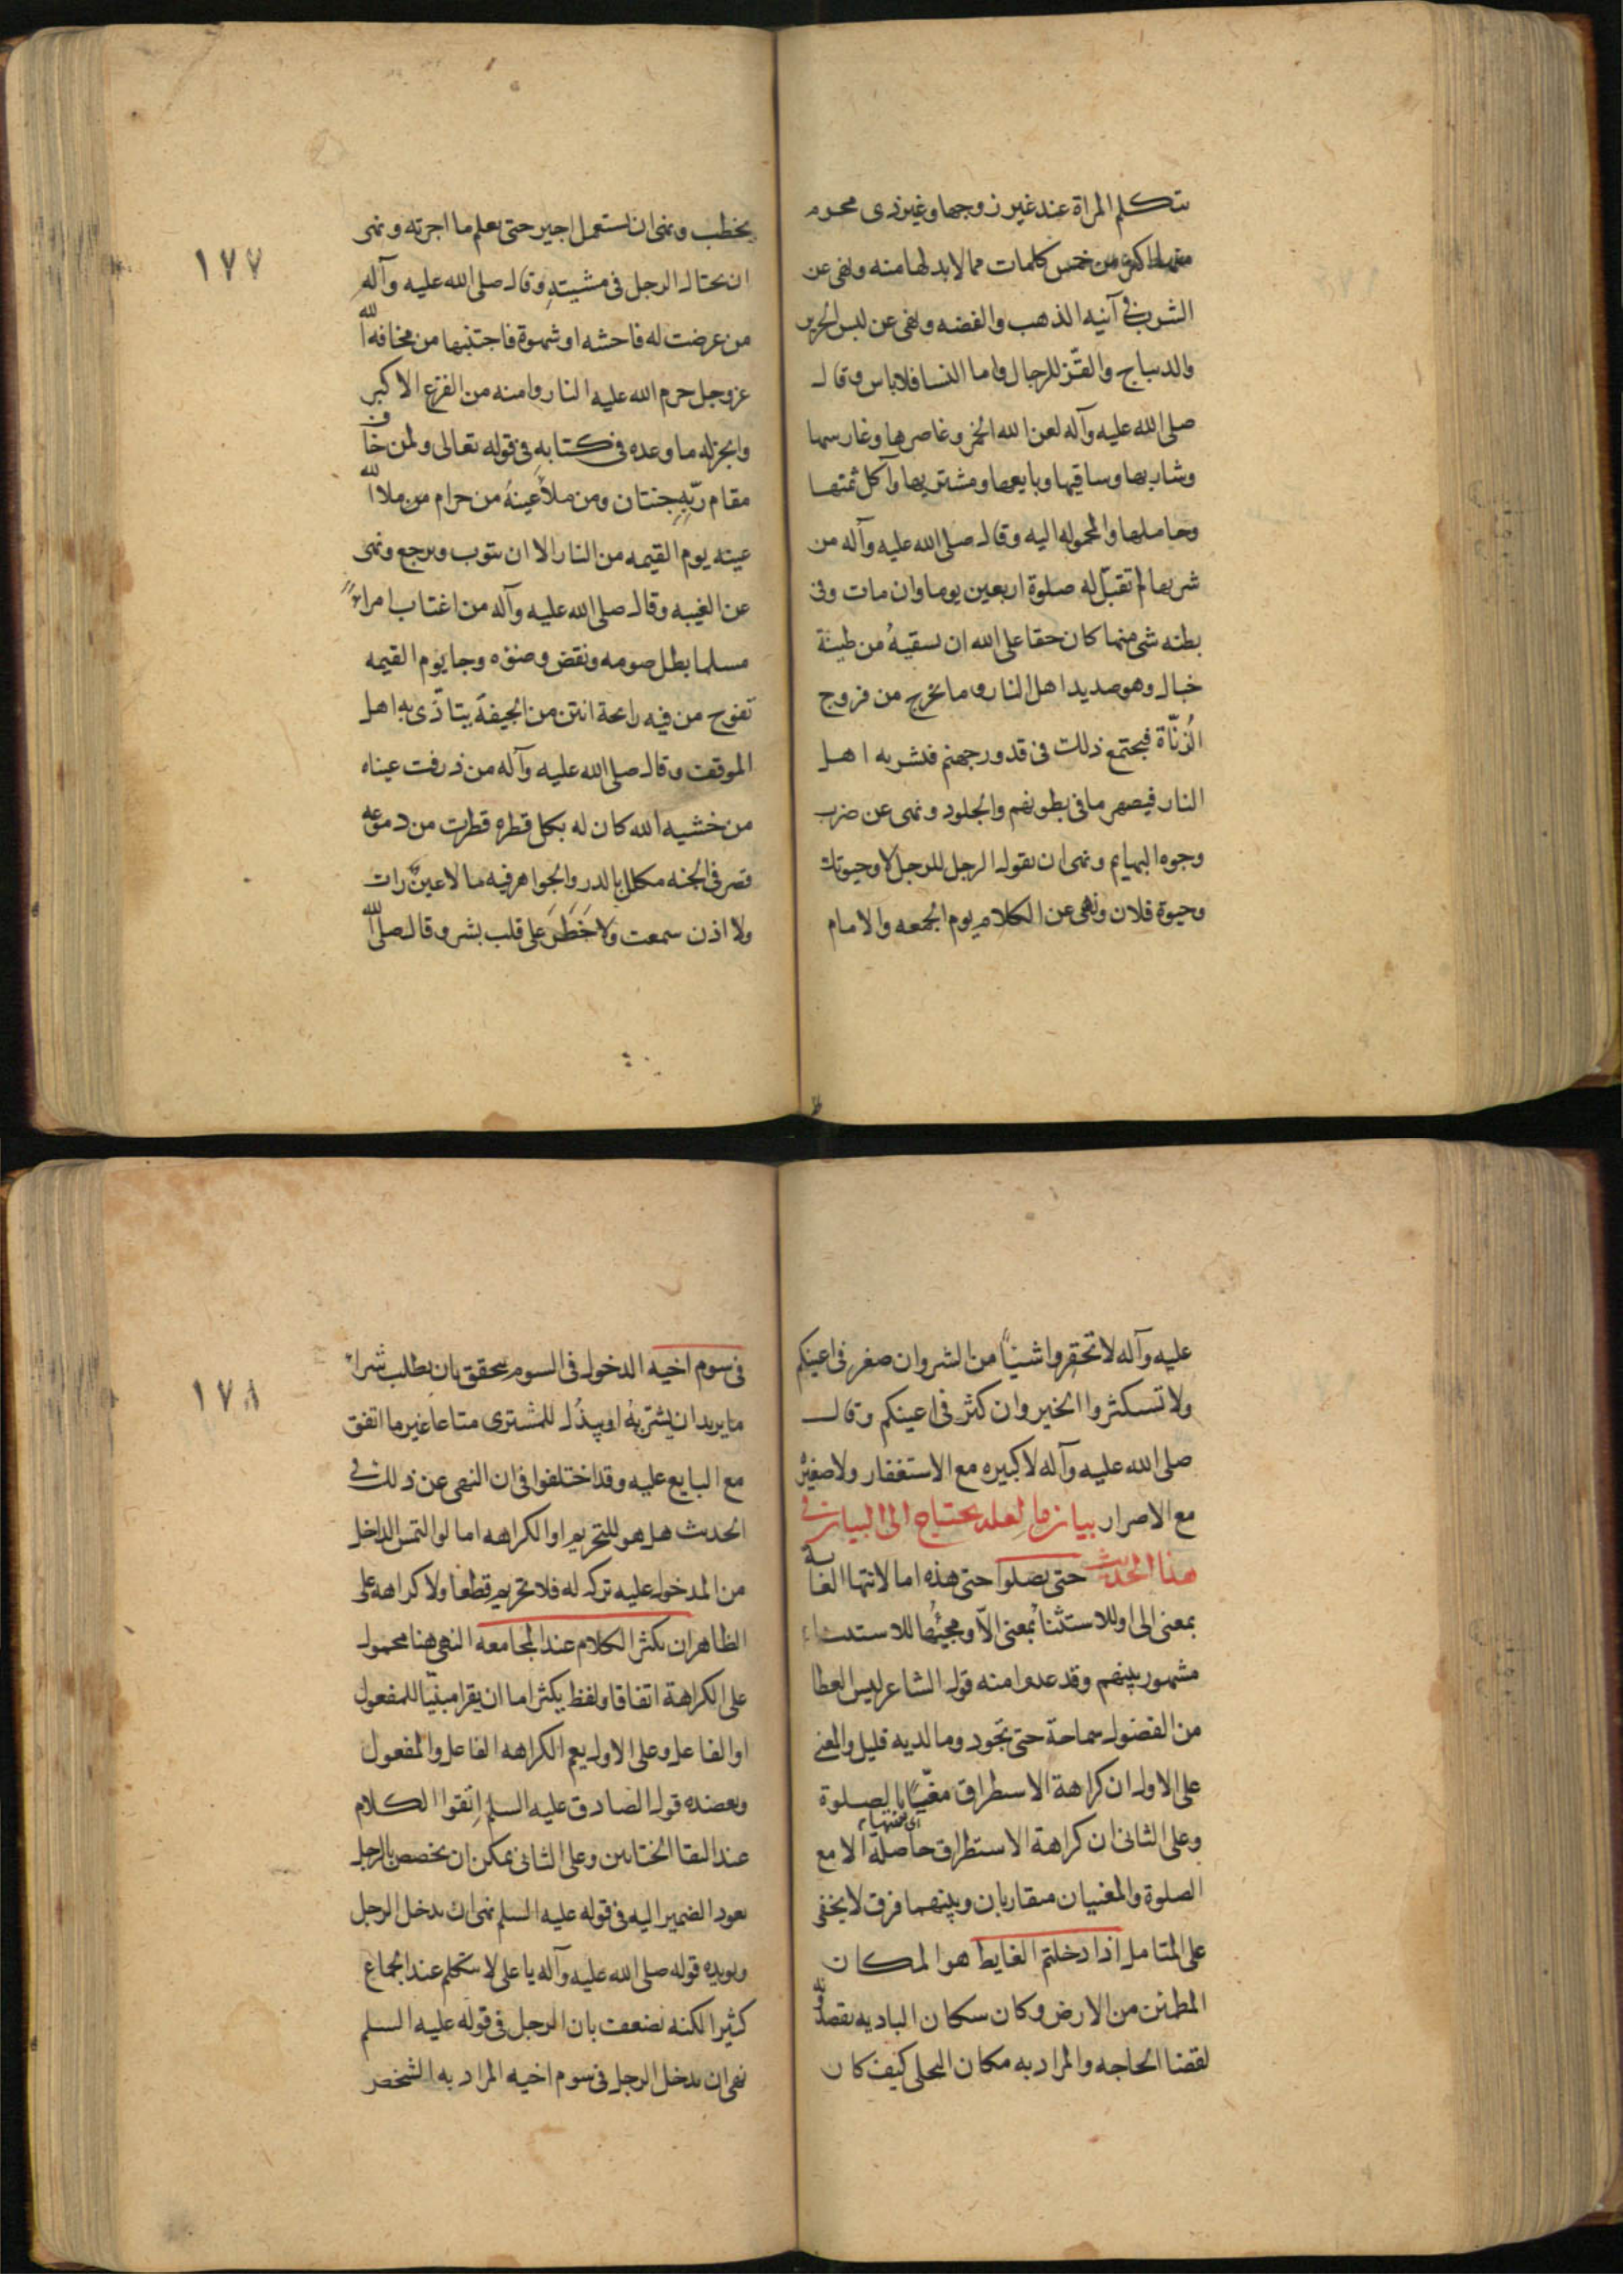 تتكلم المراة عند غير زوجها وغير ذى محرم
منها اكثر من خمس كلمات مما لا بد لها منه ونهى عن
الشرب فى آنيه الذهب والفضه ونهى عن لبس الحرير
والديباج والقزّ للرجال واما النسا فلا باس وقال
صلى الله عليه وآله لعن الله الخمر وعاصرها وغارسها
وشاربها وساقيها وبايعها ومشتريها وآكل ثمنها
وحاملها والمحموله اليه وقال صلى الله عليه وآله من
شربها لم تقبل له صلوة اربعين يوما وان مات وفى
بطنه شى منها كان حقا على الله ان يسقيهُ من طينة
خبال وهو صديد اهل النار وما يخرج من فروج
الزُنّاة فيجتمع ذلك فى قدور جهنم فيشربه اهل
النار فيصهر ما فى بطونهم والجلود ونهى عن ضرب
وجوه البهايم ونهى ان يقول الرجل للرجل لا وحيوتك
وحيوة فلان ونهى عن الكلام يوم الجمعه والامام
يخطب ونهى ان يستعمل اجير حتى يعلم ما اجرته ونهى
١٧٧
ان يختال الرجل فى مشيتهِ وقال صلى الله عليه وآله
من عرضت له فاحشه او شهوة فاجتنبها من مخافه الله
عز وجل حرم الله عليه النار وامنه من الفزع الاكبر
وانجز له ما وعده فى كتابهِ فى قوله تعالى ولمن خاف
مقام ربّهِ جنتان ومن ملأ عينهُ من حرام من ملا الله
عينه يوم القيمه من النار الا ان يتوب ويرجع ونهى
عن الغيبه وقال صلى الله عليه وآله من اغتاب امراءً
مسلما بطل صومه ونقض وضوءه وجا يوم القيمه
تفوح من فيه رايحة انتن من الجيفة يتاذّى به اهل
الموقف وقال صلى الله عليه وآله من ذرفت عيناه
من خشيه الله كان له بكل قطره قطرت من دموعه
قصر فى الجنه مكلل بالدر والجواهر فيه ما لا عينٌ رات
ولا اذن سمعت ولا خَطَرَ على قلب بشر وقال صلى الله
عليه وآله لا تحقروا شيئاً من الشر وان صغر فى اعينكم
ولا تستكثروا الخير وان كثر فى اعينكم وقال
صلى الله عليه وآله لا كبيره مع الاستغفار ولا صغيره
مع الاصرار بيان ما لعله يحتاج الى البيان فى
هذا الحديث حتى يصلوا حتى هذه اما لانتها الغاية
بمعنى الى او للاستثنا بمعنى الاّ ومجيئها للاستثناء
مشهور بينهم وقد عدوا منه قول الشاعر ليس العطا
من الفضول سماحة حتى تجود وما لديه قليل والمعنى
على الاول ان كراهة الاستطراق مغيّاً بالصلوة
اى منتهيا
وعلى الثانى ان كراهة الاستطراق حاصلة الا مع
الصلوة والمعنيان متقاربان وبينهما فرق لا يخفى
على المتامل اذا دخلتم الغايط هو المكان
المطمئن من الارض وكان سكان الباديه يقصدونه
لقضا الحاجه والمراد به مكان التخلى كيف كان
فى سوم اخيه الدخول فى السوم يتحقق بان يطلب شراء
١٧٨
ما يريد ان يشتريهُ او يبذُل للمشترى متاعا غير ما اتفق
مع البايع عليه وقد اختلفوا فى ان النهى عن ذلك فى
الحديث هل هو للتحريم او الكراهه اما لو التمس الداخل
من المدخول عليه تركه له فلا تحريم قطعا ولا كراهة على
الظاهر ان يكثر الكلام عند المجامعه النهى هنا محمول
على الكراهة اتفاقا ولفظ يكثر اما ان يقرا مبنيّا للمفعول
او الفاعل وعلى الاول يعم الكراهه الفاعل والمفعول
ويعضده قول الصادق عليه السلم اتقوا الكلام
عند التقا الختانين وعلى الثانى يمكن ان يخصص بالرجل
بعود الضمير اليه فى قوله عليه السلم نهى ان يدخل الرجل
ويويده قوله صلى الله عليه وآله يا على لا تتكلم عند الجماع
كثيرا لكنه يضعف بان الرجل فى قوله عليه السلم
نهى ان يدخل الرجل فى سوم اخيه المراد به الشخص